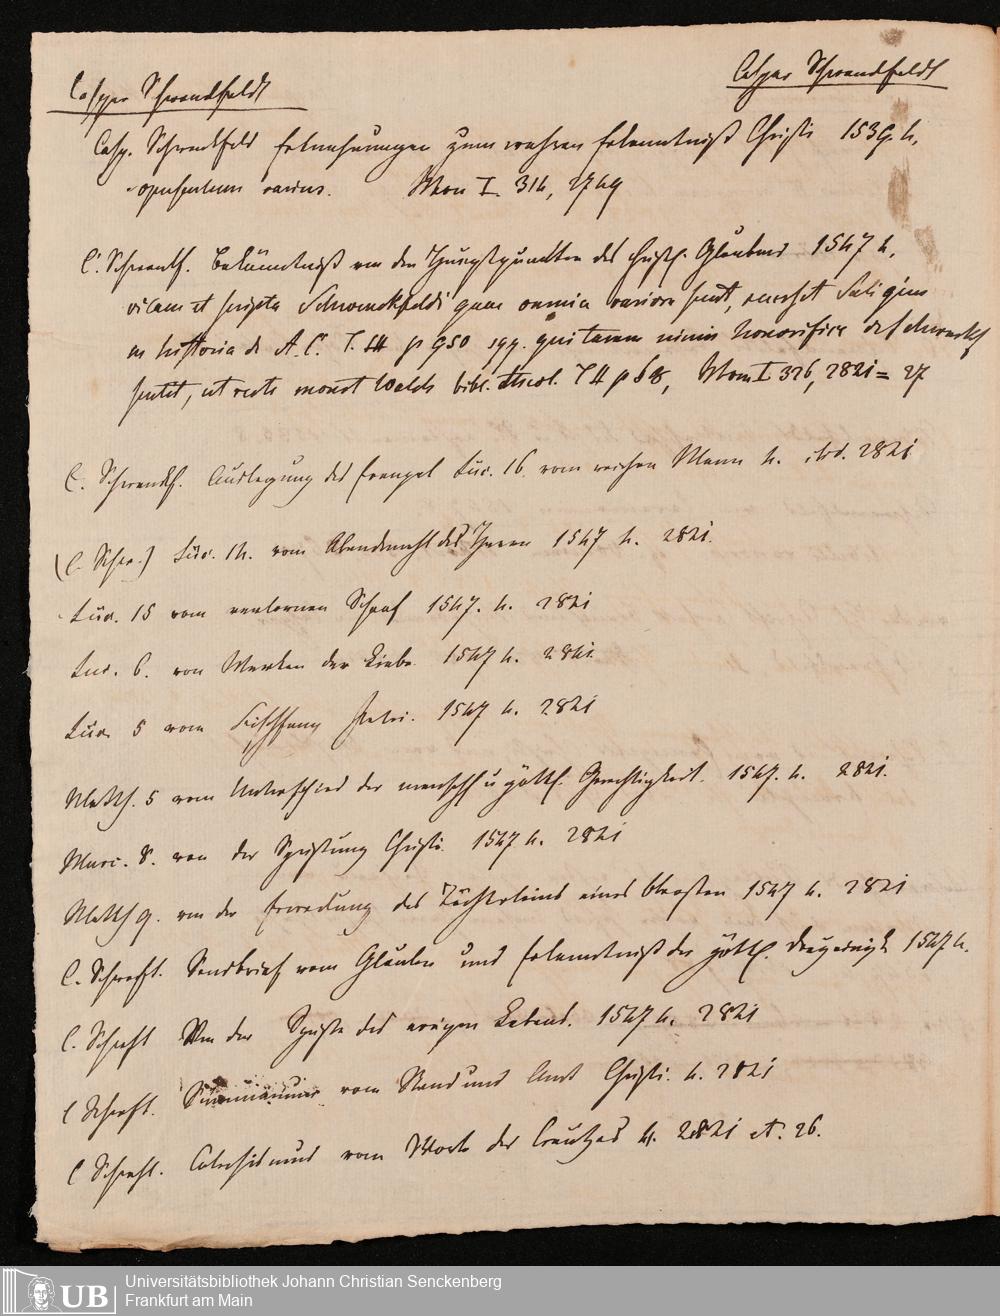 Casper Schwendfeldt
Casper Schwendfeldt
Casp. Schwenckfeld Ermahnungen zum wahren Erkenntniß Christi 1539. 4.
opusculum rarius. Mon I. 314, 2749
C. Schwenckf. Bekänntniß von den Hauptpunckten des Christl. Glaubens 1547 4.
vitam et scripta Schwenckfeldi quae omnia rariora sunt, recenset Salig in
in historia de A. C. T. III p 950 sqq. qui tamen nimis honorifice de Schwenckf
sentit, ut recte monet Walch bibl. theol. T II p 68, Mon I 326, 2821 = 27
C. Schwenckf. Auslegung des Evangel Luc. 16. vom reichen Mann 4. ibid. 2821
(C. Schw.) Luc. 14. vom Abendmahl des Herrn 1547 4. 2821.
Luc. 15 vom verlornen Schaaf 1547. 4. 2821
Luc. 6. von Wercken der Liebe. 1547 4. 2821.
Luc. 5 vom Fischfang Petri. 1547 4. 2821
Matth. 5 vom Unterschied der menschl u göttl. Gerechtigkeit. 1547. 4. 2821.
Marc. 8. von der Speisung Christi. 1547 4. 2821
Matth 9. von der Erweckung des Töchterleins eines Obersten 1547 4. 2821
C. Schwckf. Sendbrief vom Glauben und Erkenntniß der göttl. Dreyeinigk 1547 4.
C. Schwckf Von der Speise des ewigen Lebens. 1547 4. 2821
C Schwckf. Summarium vom Stand und Amt Christi. 4. 2821
C Schwckf. Catechismus vom Worte des Creutzes 4. 2821 et. 26.
UB
Universitätsbibliothek Johann Christian Senckenberg
Frankfurt am Main